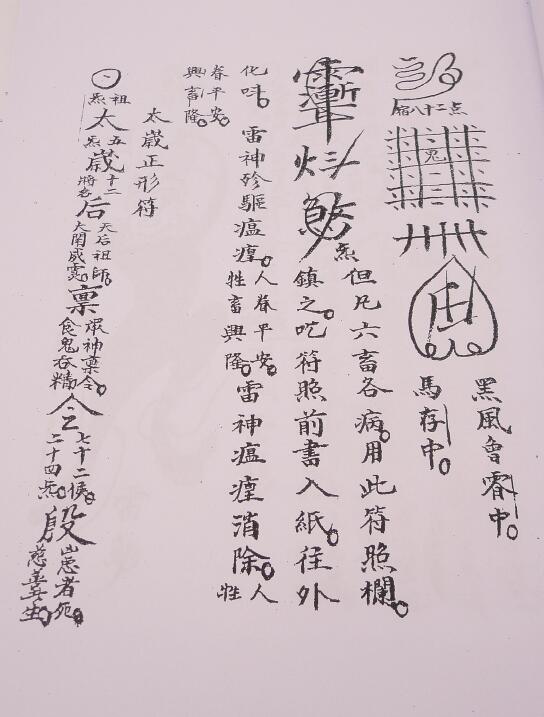 点二十八宿
鬼
黑風會
中。
馬存中。
炁
但凡六畜各病。用此符照欄。
鎮之。吃符照前書入紙。徃外
化
雷神
驅瘟㾮。
人眷平安。
牲畜興隆。
雷神瘟㾮消除。
人
牲
眷平安。
興畜隆。
太歲正形符
祖
炁
太
五
炁
歲
十二
將名
后
天后祖師。
大開威靈。
禀
眾神禀令。
食鬼吞精。
令
七十二候。
二十四炁。
殷
祟者死。
慈善生。